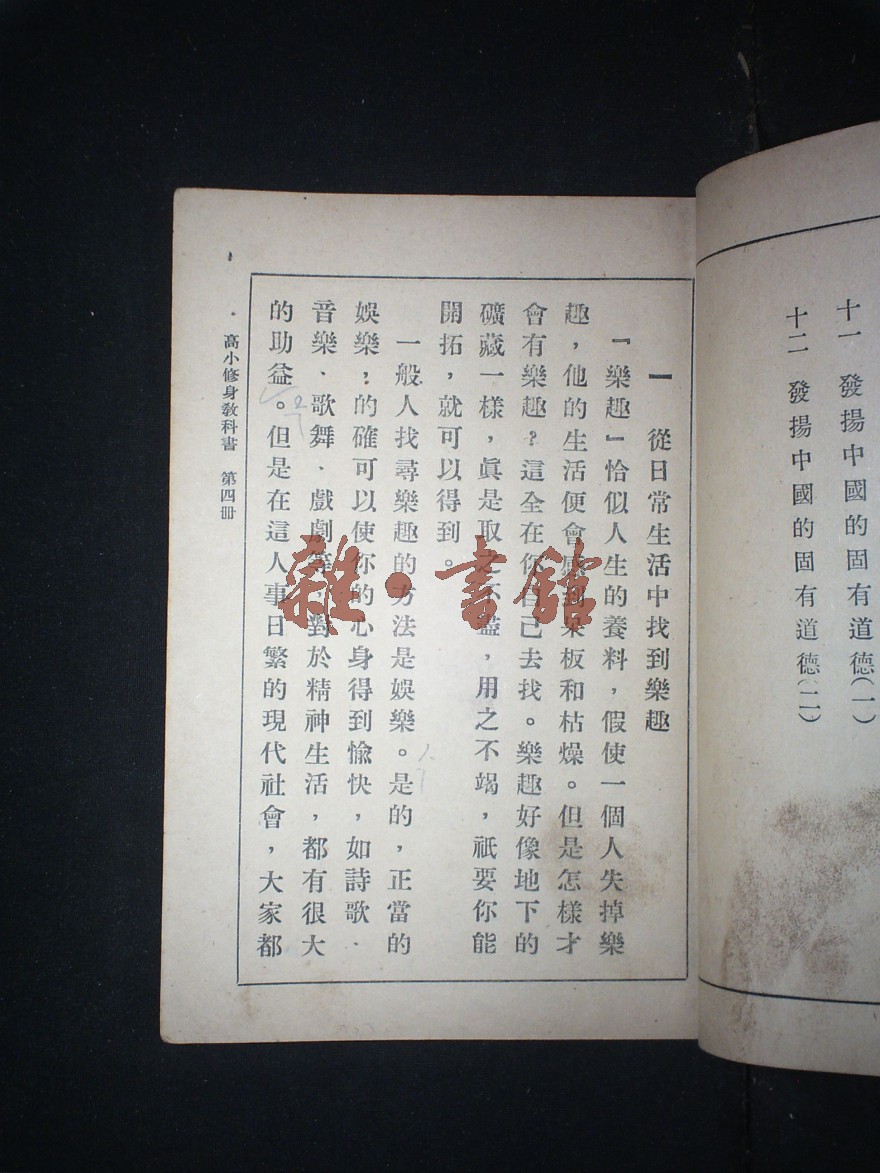 十一　發揚中國的固有道德(一)
十二　發揚中國的固有道德(二)
一　從日常生活中找到樂趣
『樂趣』恰似人生的養料，假使一個人失掉樂
趣，他的生活便會感到呆板和枯燥。但是怎樣才
會有樂趣？這全在你自己去找。樂趣好像地下的
礦藏一樣，眞是取之不盡，用之不竭，祇要你能
開拓，就可以得到。
一般人找尋樂趣的方法是娛樂。是的，正當的
娛樂，的確可以使你的心身得到愉快，如詩歌、
音樂、歌舞、戲劇等，對於精神生活，都有很大
的助益。但是在這人事日繁的現代社會，大家都
高小修身敎科書　第四冊
雜·書館